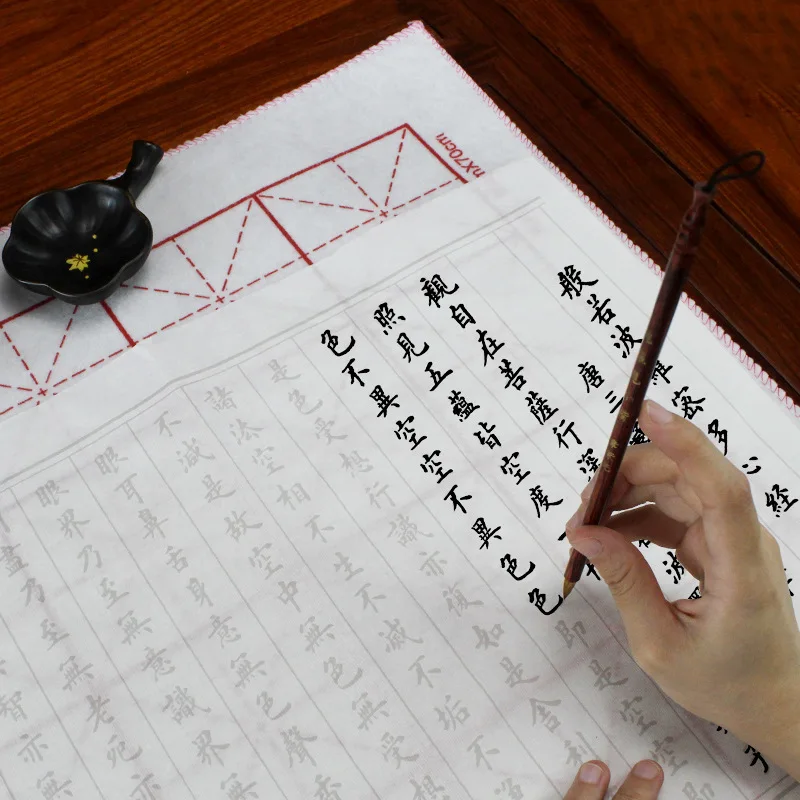 nX70cm
般若波羅蜜多心経
唐三
觀自在菩薩行深波
照見五蘊皆空度一
色不異空空不異色色即是空空即
是色受想行識亦復如是舍利
諸法空相不生不滅不垢不
不減是故空中無色無受想
眼耳鼻舌身意無色聲香
眼界乃至無意識界無
盡乃至無老死亦
智亦無